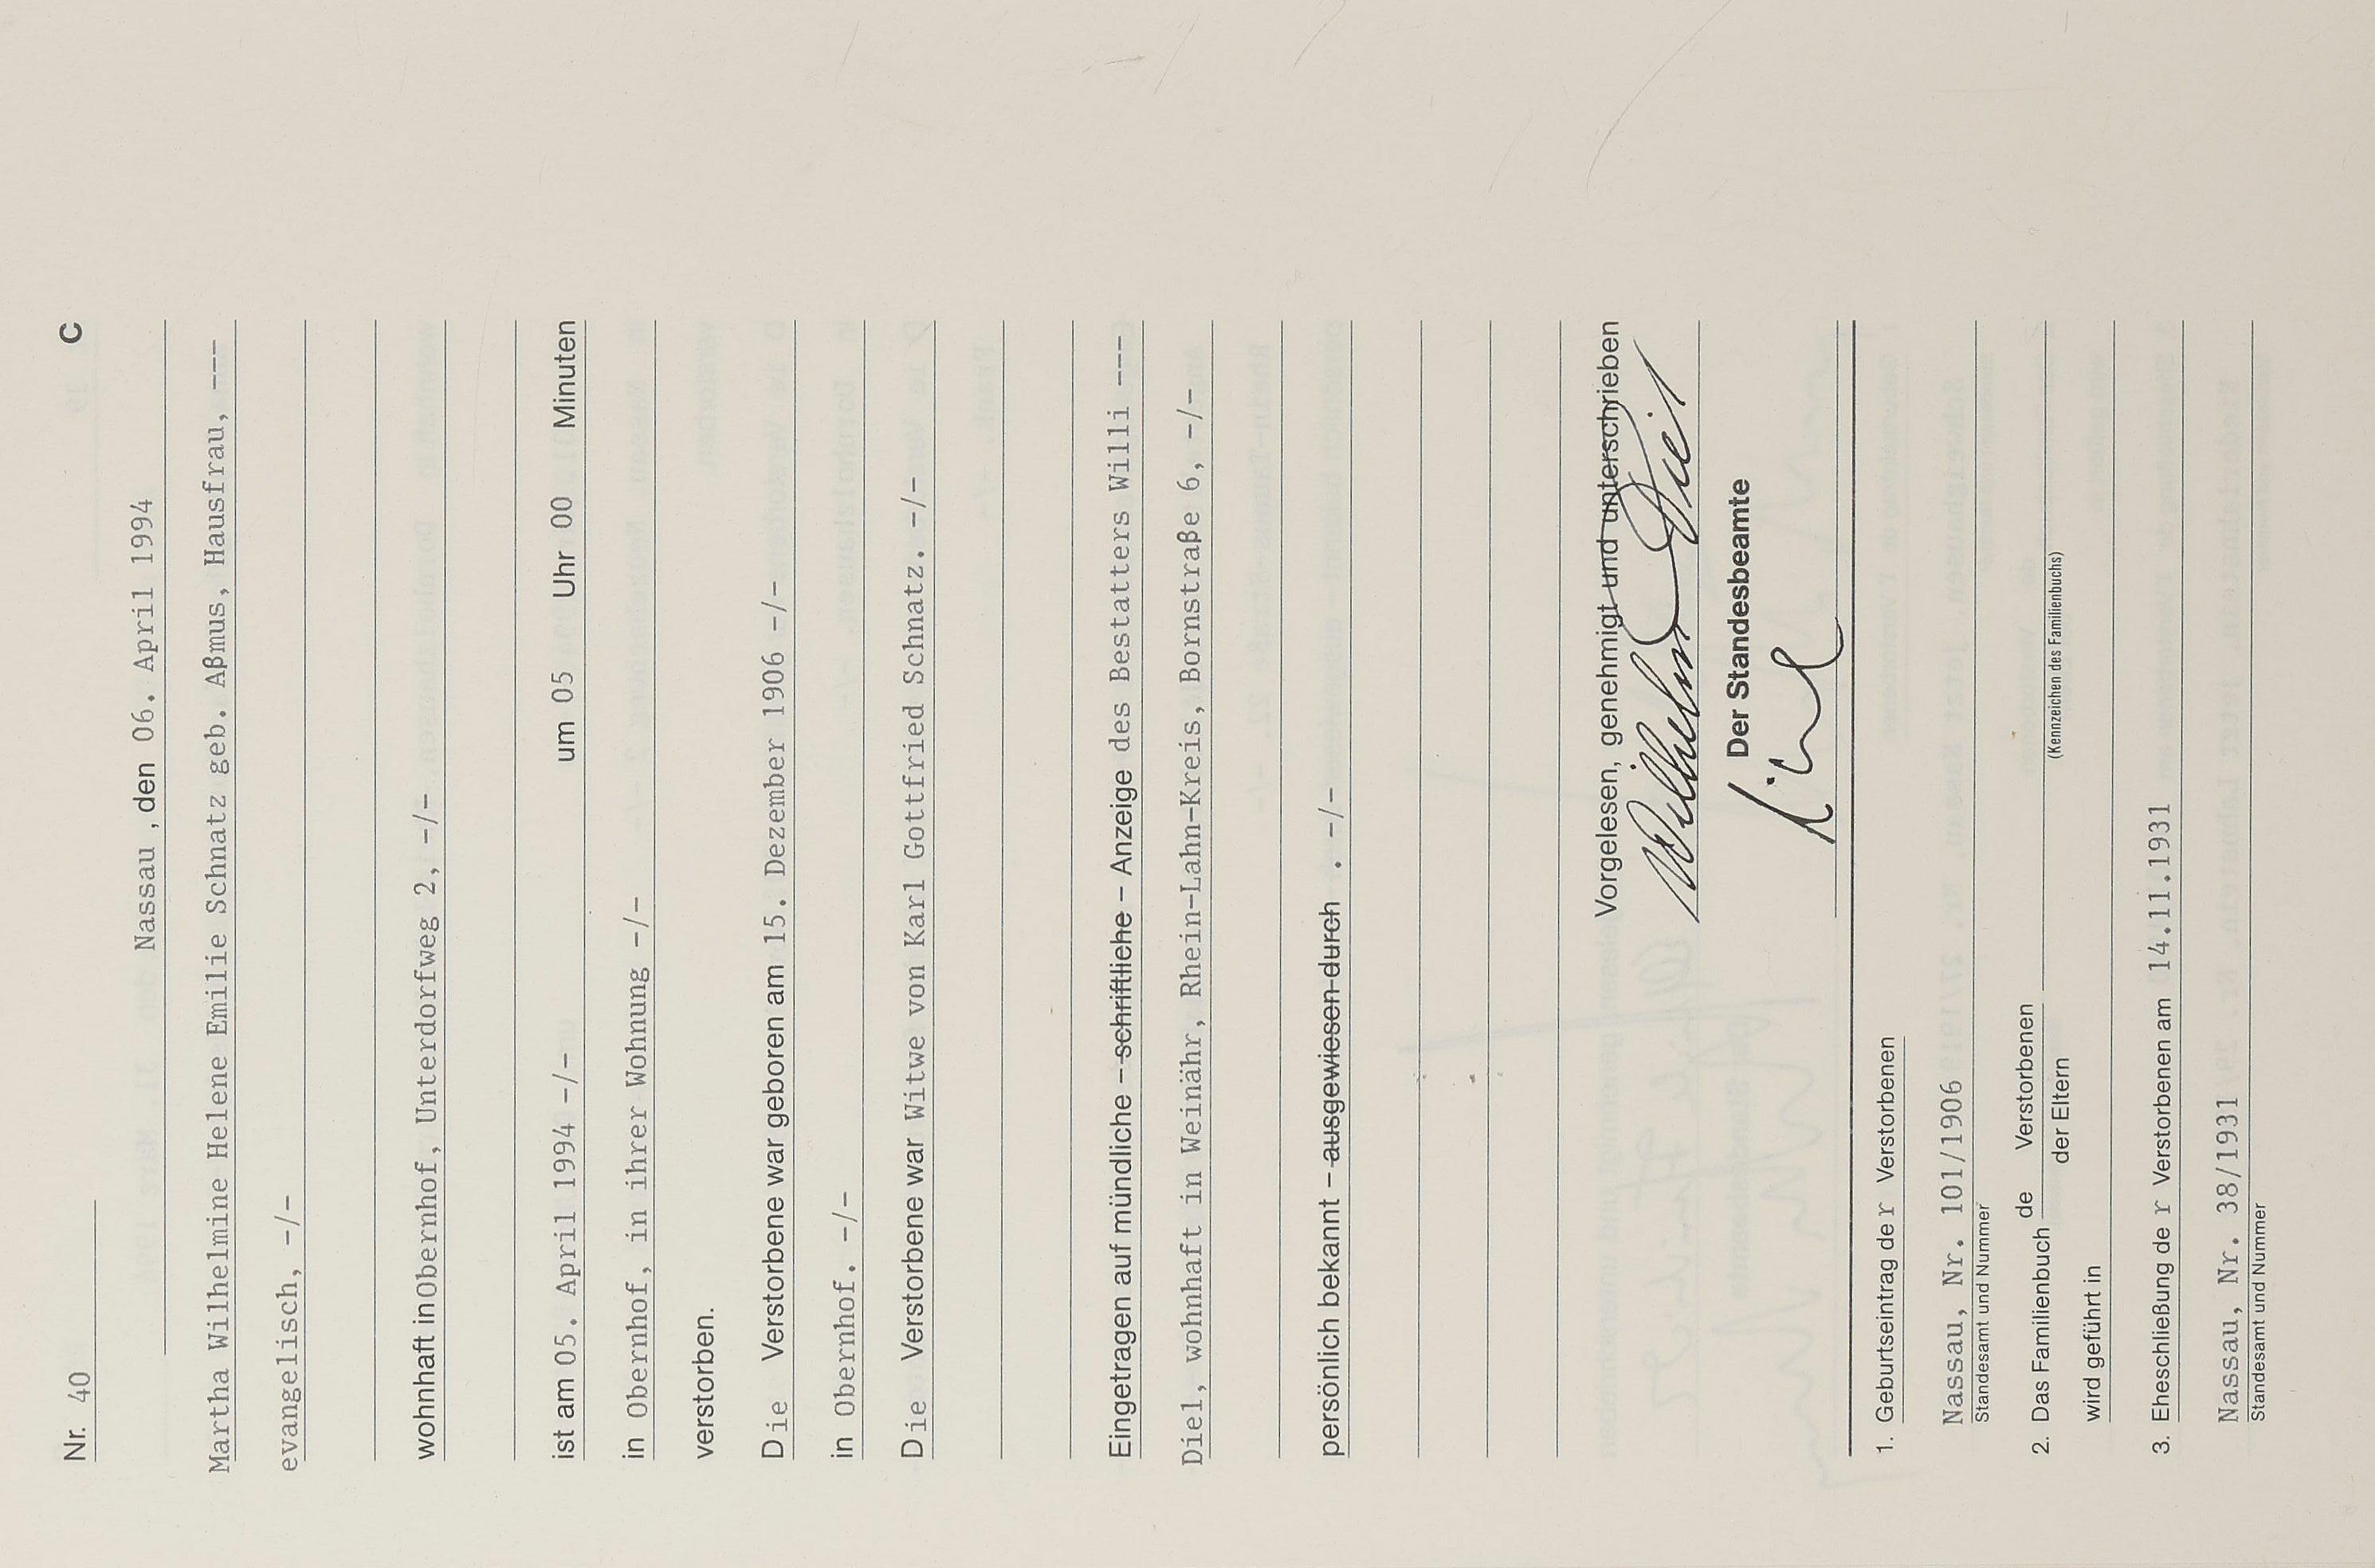 Nr. 40 C
Nassau , den 06. April 1994
Martha Wilhelmine Helene Emilie Schnatz geb. Aßmus, Hausfrau, ---
evangelisch, -/-
wohnhaft in Obernhof, Unterdorfweg 2, -/-
ist am 05. April 1994 -/- um 05 Uhr 00 Minuten
in Obernhof, in ihrer Wohnung -/-
verstorben.
Die Verstorbene war geboren am 15. Dezember 1906 -/-
in Obernhof. -/-
Die Verstorbene war Witwe von Karl Gottfried Schnatz. -/-
Eingetragen auf mündliche – schriftliche – Anzeige des Bestatters Willi ---
Diel, wohnhaft in Weinähr, Rhein-Lahn-Kreis, Bornstraße 6, -/-
persönlich bekannt – ausgewiesen durch . -/-
Vorgelesen, genehmigt und unterschrieben
Wilhelm Diel
Der Standesbeamte
1. Geburtseintrag der Verstorbenen
Nassau, Nr. 101/1906
Standesamt und Nummer
2. Das Familienbuch de Verstorbenen
der Eltern
(Kennzeichen des Familienbuchs)
wird geführt in
3. Eheschließung der Verstorbenen am 14.11.1931
Nassau, Nr. 38/1931
Standesamt und Nummer